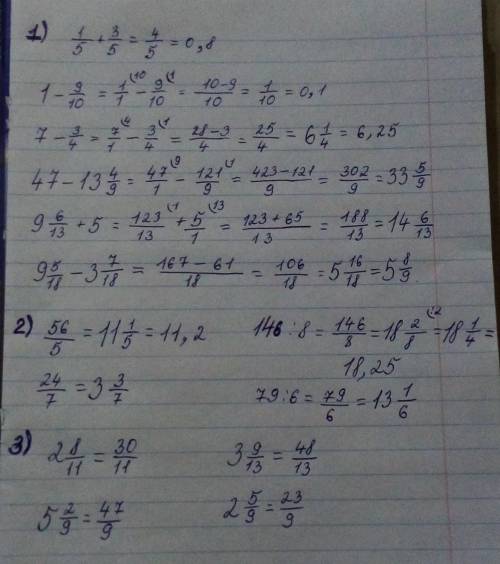 1) 1/5 + 3/5 = 4/5 = 0,8
1 - 9/10 = 1/1 (10 - 9/10 (1 = 10-9/10 = 1/10 = 0,1
7 - 3/4 = 7/1 (4 - 3/4 (1 = 28-3/4 = 25/4 = 6 1/4 = 6,25
47 - 13 4/9 = 47/1 (9 - 121/9 (1 = 423-121/9 = 302/9 = 33 5/9
9 6/13 + 5 = 123/13 (1 + 5/1 (13 = 123+65/13 = 188/13 = 14 6/13
9 5/18 - 3 7/18 = 167-61/18 = 106/18 = 5 16/18 = 5 8/9
2) 56/5 = 11 1/5 = 11,2
24/7 = 3 3/7
146 : 8 = 146/8 = 18 2/8 (:2 = 18 1/4 =
18,25
79 : 6 = 79/6 = 13 1/6
3) 2 8/11 = 30/11
3 9/13 = 48/13
5 2/9 = 47/9
2 5/9 = 23/9